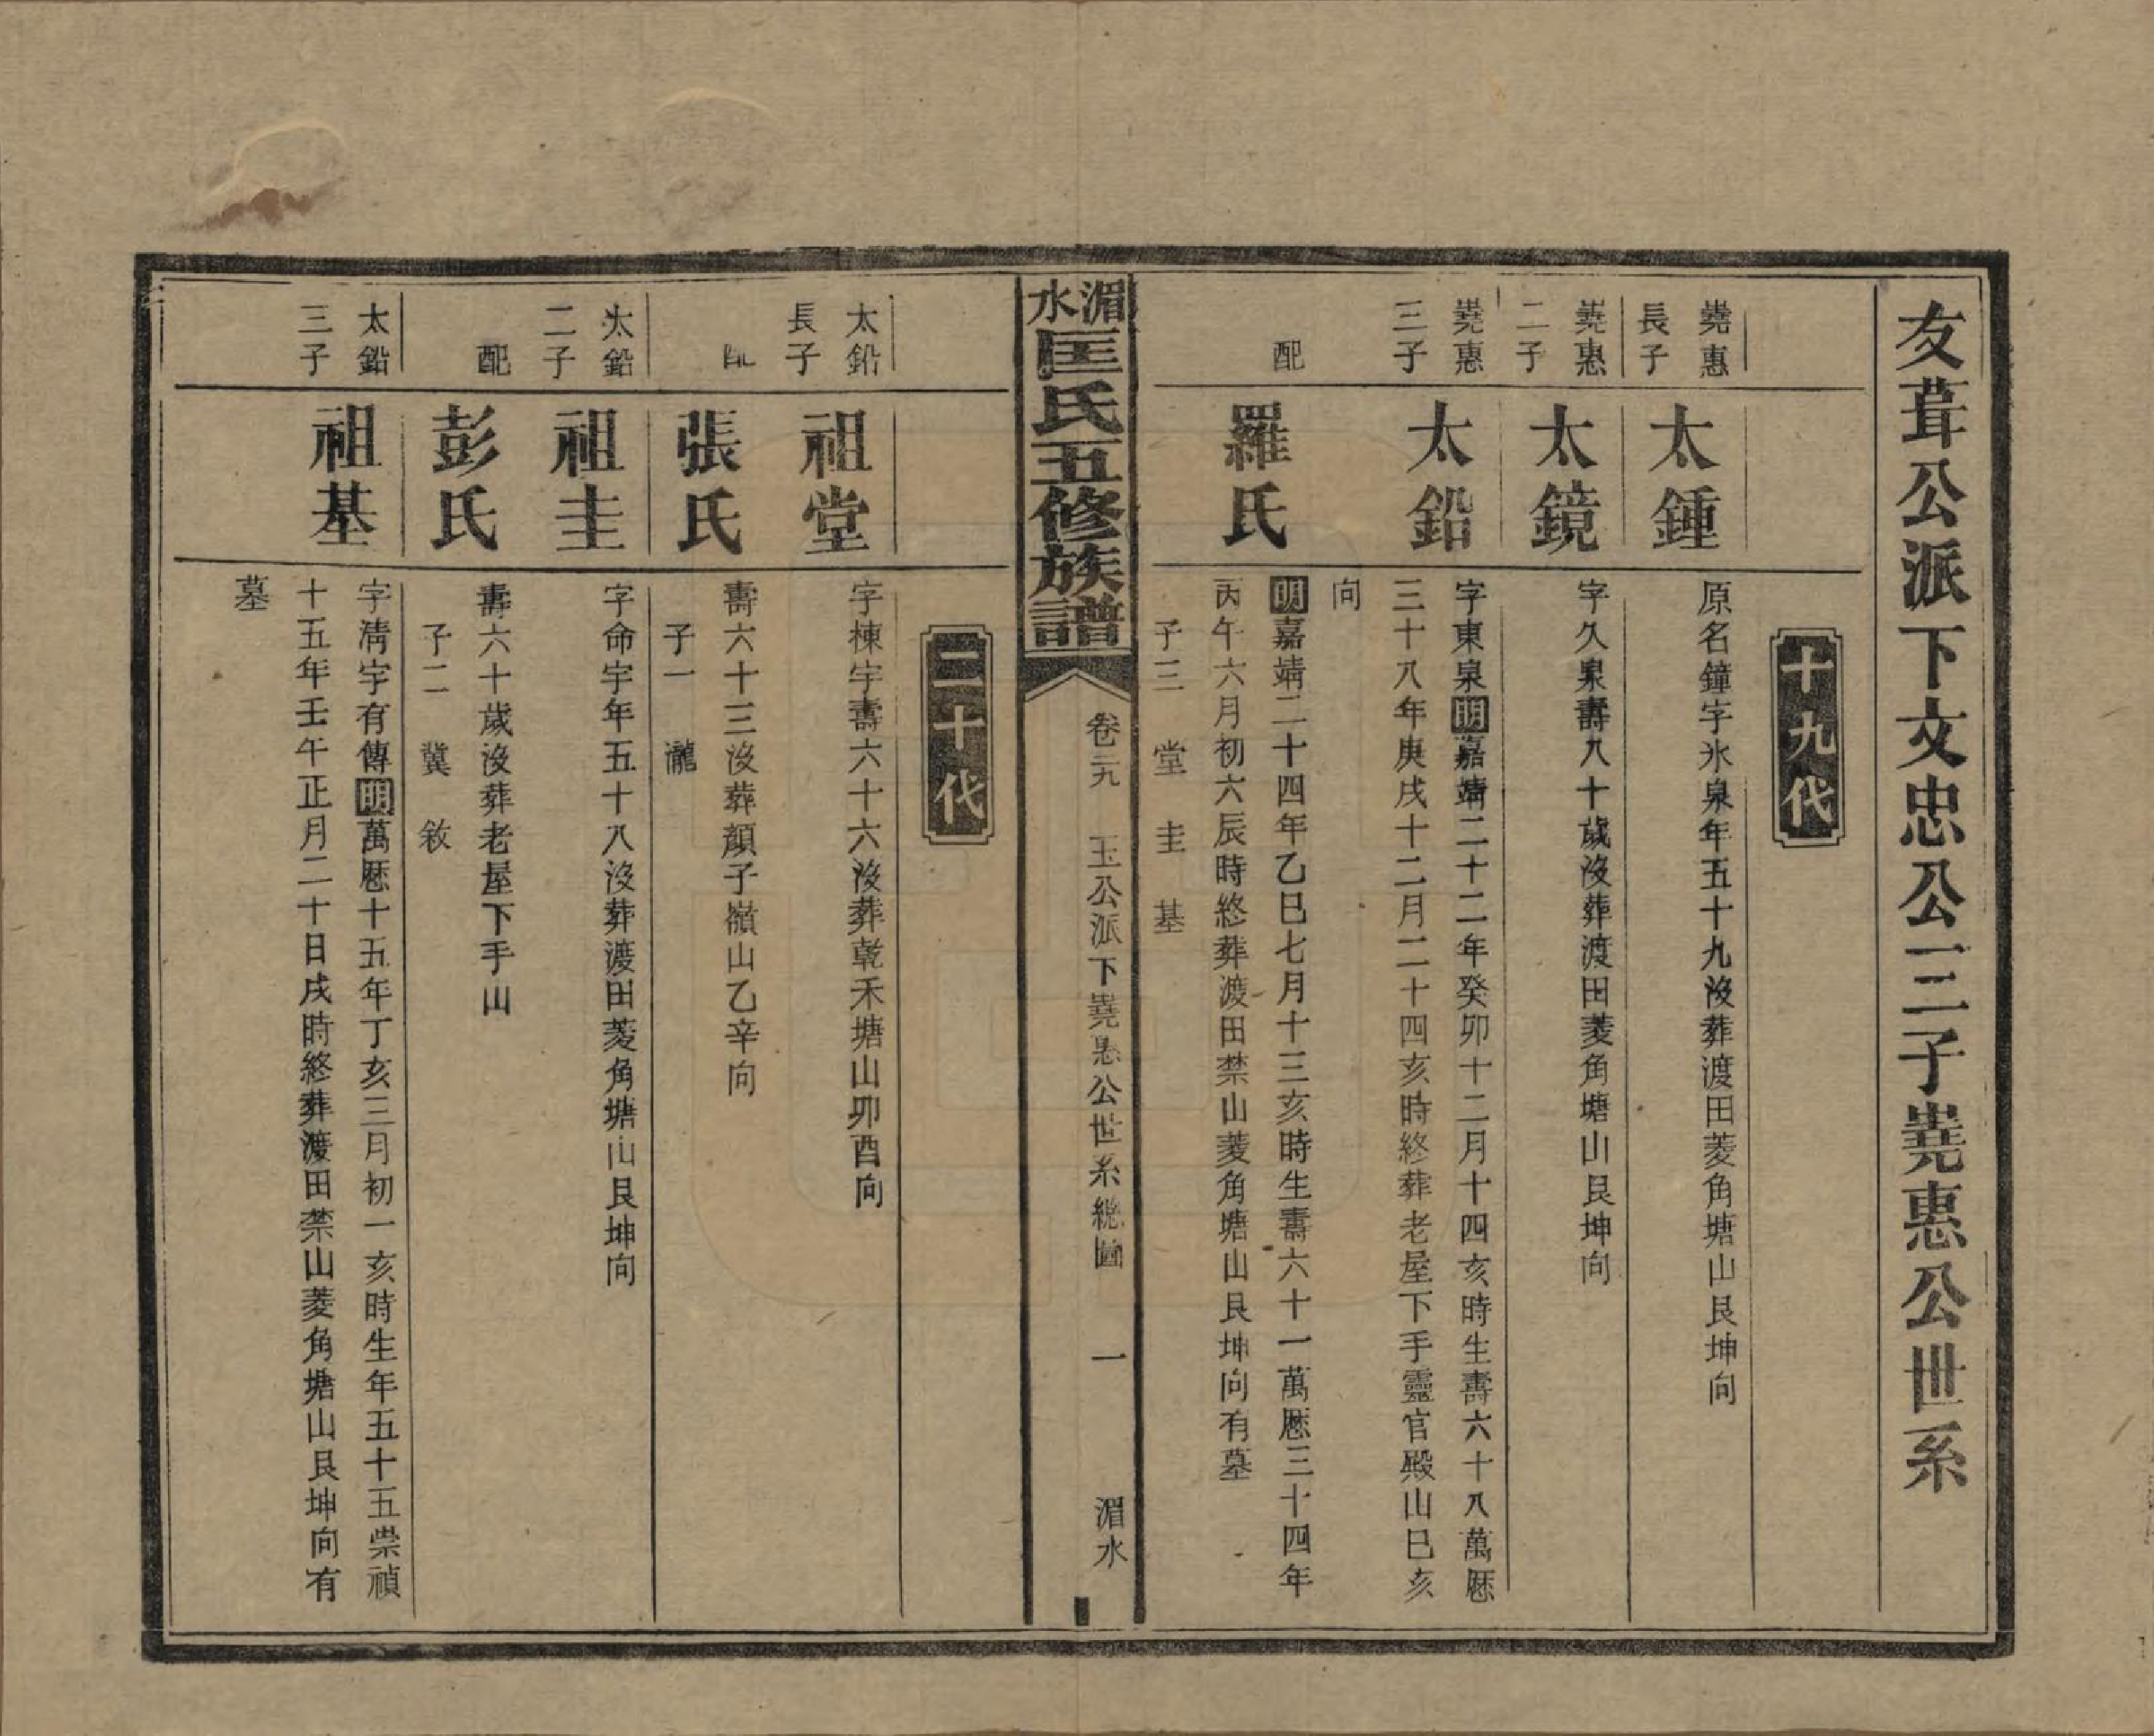 友葺公派下文忠公三子嶤惠公世系
十九代
嶤惠
長子
太鍾
原名鐘字氷泉年五十九沒葬渡田菱角塘山艮坤向
嶤惠
二子
太鏡
字久泉壽八十歲沒葬渡田菱角塘山艮坤向
嶤惠
三子
太鉛
字東泉明嘉靖二十二年癸卯十二月十四亥時生壽六十八萬厯
三十八年庚戌十二月二十四亥時終葬老屋下手靈官殿山巳亥
向
配
羅氏
明嘉靖二十四年乙巳七月十三亥時生壽六十一萬厯三十四年
丙午六月初六辰時終葬渡田禁山菱角塘山艮坤向有墓
子三 堂 圭 基
湄水匡氏五修族譜
卷三九 玉公派下嶤惠公世系總圖 一 湄水
二十代
太鉛
長子
祖堂
字棟宇壽六十六沒葬乾禾塘山卯酉向
配
張氏
壽六十三沒葬顏子嶺山乙辛向
子一 瀧
太鉛
二子
祖圭
字命宇年五十八沒葬渡田菱角塘山艮坤向
配
彭氏
壽六十歲沒葬老屋下手山
子二 冀 敘
太鉛
三子
祖基
字淸宇有傳明萬厯十五年丁亥三月初一亥時生年五十五崇禎
十五年壬午正月二十日戌時終葬渡田禁山菱角塘山艮坤向有
墓